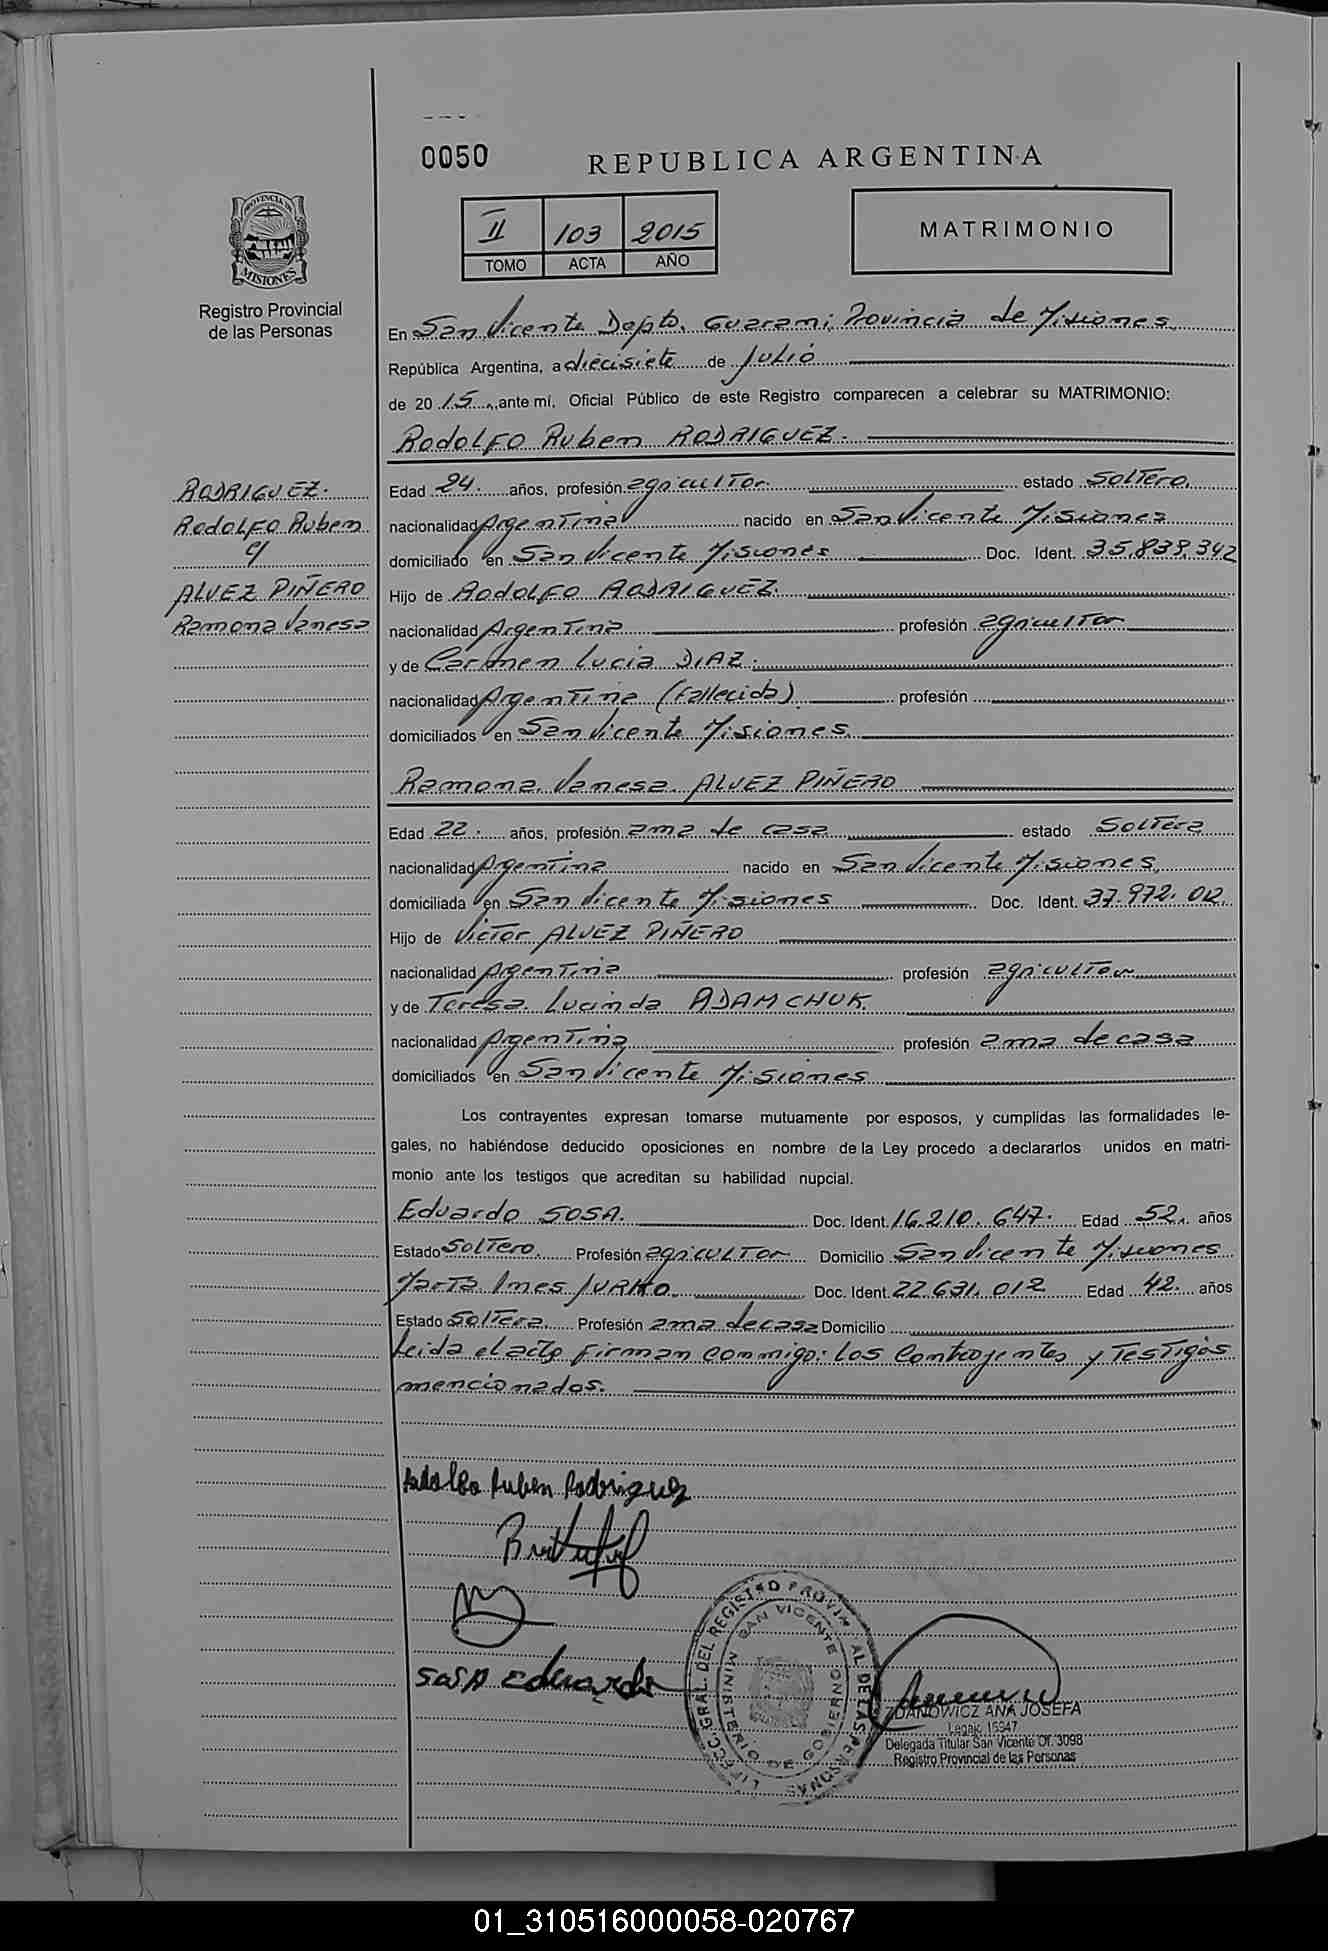 0050
REPUBLICA ARGENTINA
II 103 2015
TOMO ACTA AÑO
MATRIMONIO
PROVINCIA DE
MISIONES
Registro Provincial
de las Personas
En San Vicente Depto. Guarani, Provincia de Misiones
República Argentina, a diecisiete de Julio
de 2015, ante mí, Oficial Público de este Registro comparecen a celebrar su MATRIMONIO:
Rodolfo Ruben RODRIGUEZ.
RODRIGUEZ.
Rodolfo Ruben
c/
ALVEZ PIÑERO
Ramona Vanesa
Edad 24. años, profesión agricultor estado Soltero.
nacionalidad Argentina nacido en San Vicente Misiones
domiciliado en San Vicente Misiones Doc. Ident. 35.839.342
Hijo de Rodolfo RODRIGUEZ.
nacionalidad Argentina profesión agricultor
y de Carmen Lucia DIAZ.
nacionalidad Argentina (Fallecida) profesión
domiciliados en San Vicente Misiones.
Ramona Vanesa ALVEZ PIÑERO
Edad 22. años, profesión ama de casa estado Soltera
nacionalidad Argentina nacido en San Vicente Misiones,
domiciliada en San Vicente Misiones Doc. Ident. 37.972.012.
Hijo de Victor ALVEZ PIÑERO
nacionalidad Argentina profesión agricultor
y de Teresa Lucinda ADAMCHUK.
nacionalidad Argentina profesión ama de casa
domiciliados en San Vicente Misiones
Los contrayentes expresan tomarse mutuamente por esposos, y cumplidas las formalidades le-
gales, no habiéndose deducido oposiciones en nombre de la Ley procedo a declararlos unidos en matri-
monio ante los testigos que acreditan su habilidad nupcial.
Eduardo SOSA. Doc. Ident. 16.210.647. Edad 52. años
Estado Soltero. Profesión agricultor Domicilio San Vicente Misiones
Marta Ines JURKO. Doc. Ident. 22.631.012 Edad 42. años
Estado Soltera. Profesión ama de casa Domicilio
Leida el acto firman conmigo: los Contrayentes y Testigos
mencionados.
Rodolfo Ruben Rodriguez
SOSA Eduardo
GRAL. DEL REGISTRO PROVIN AL DE LAS PERSONAS
MINISTERIO DE GOBIERNO SAN VICENTE
ZDANOWICZ ANA JOSEFA
Legajo 15347
Delegada Titular San Vicente Of. 3098
Registro Provincial de las Personas
01_310516000058-020767